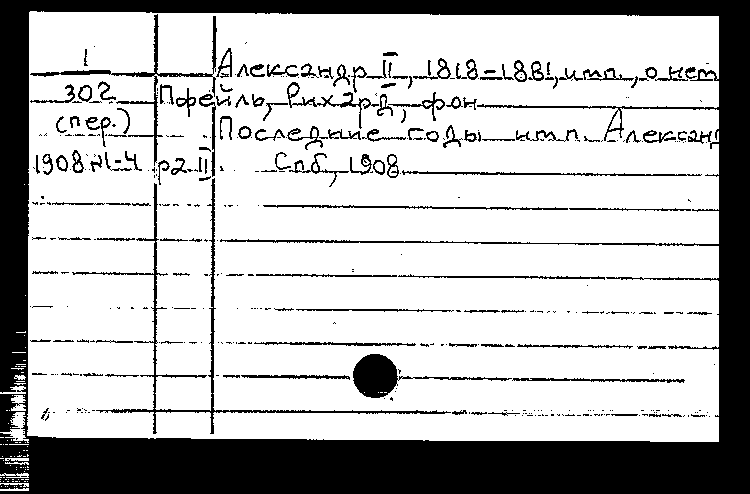 1 Александр II, 1818-1881, имп., о нем
302 Пфейль, Рихард, фон
(пер.) Последние годы имп. Александ
1908 №1-4 ра II. Спб, 1908